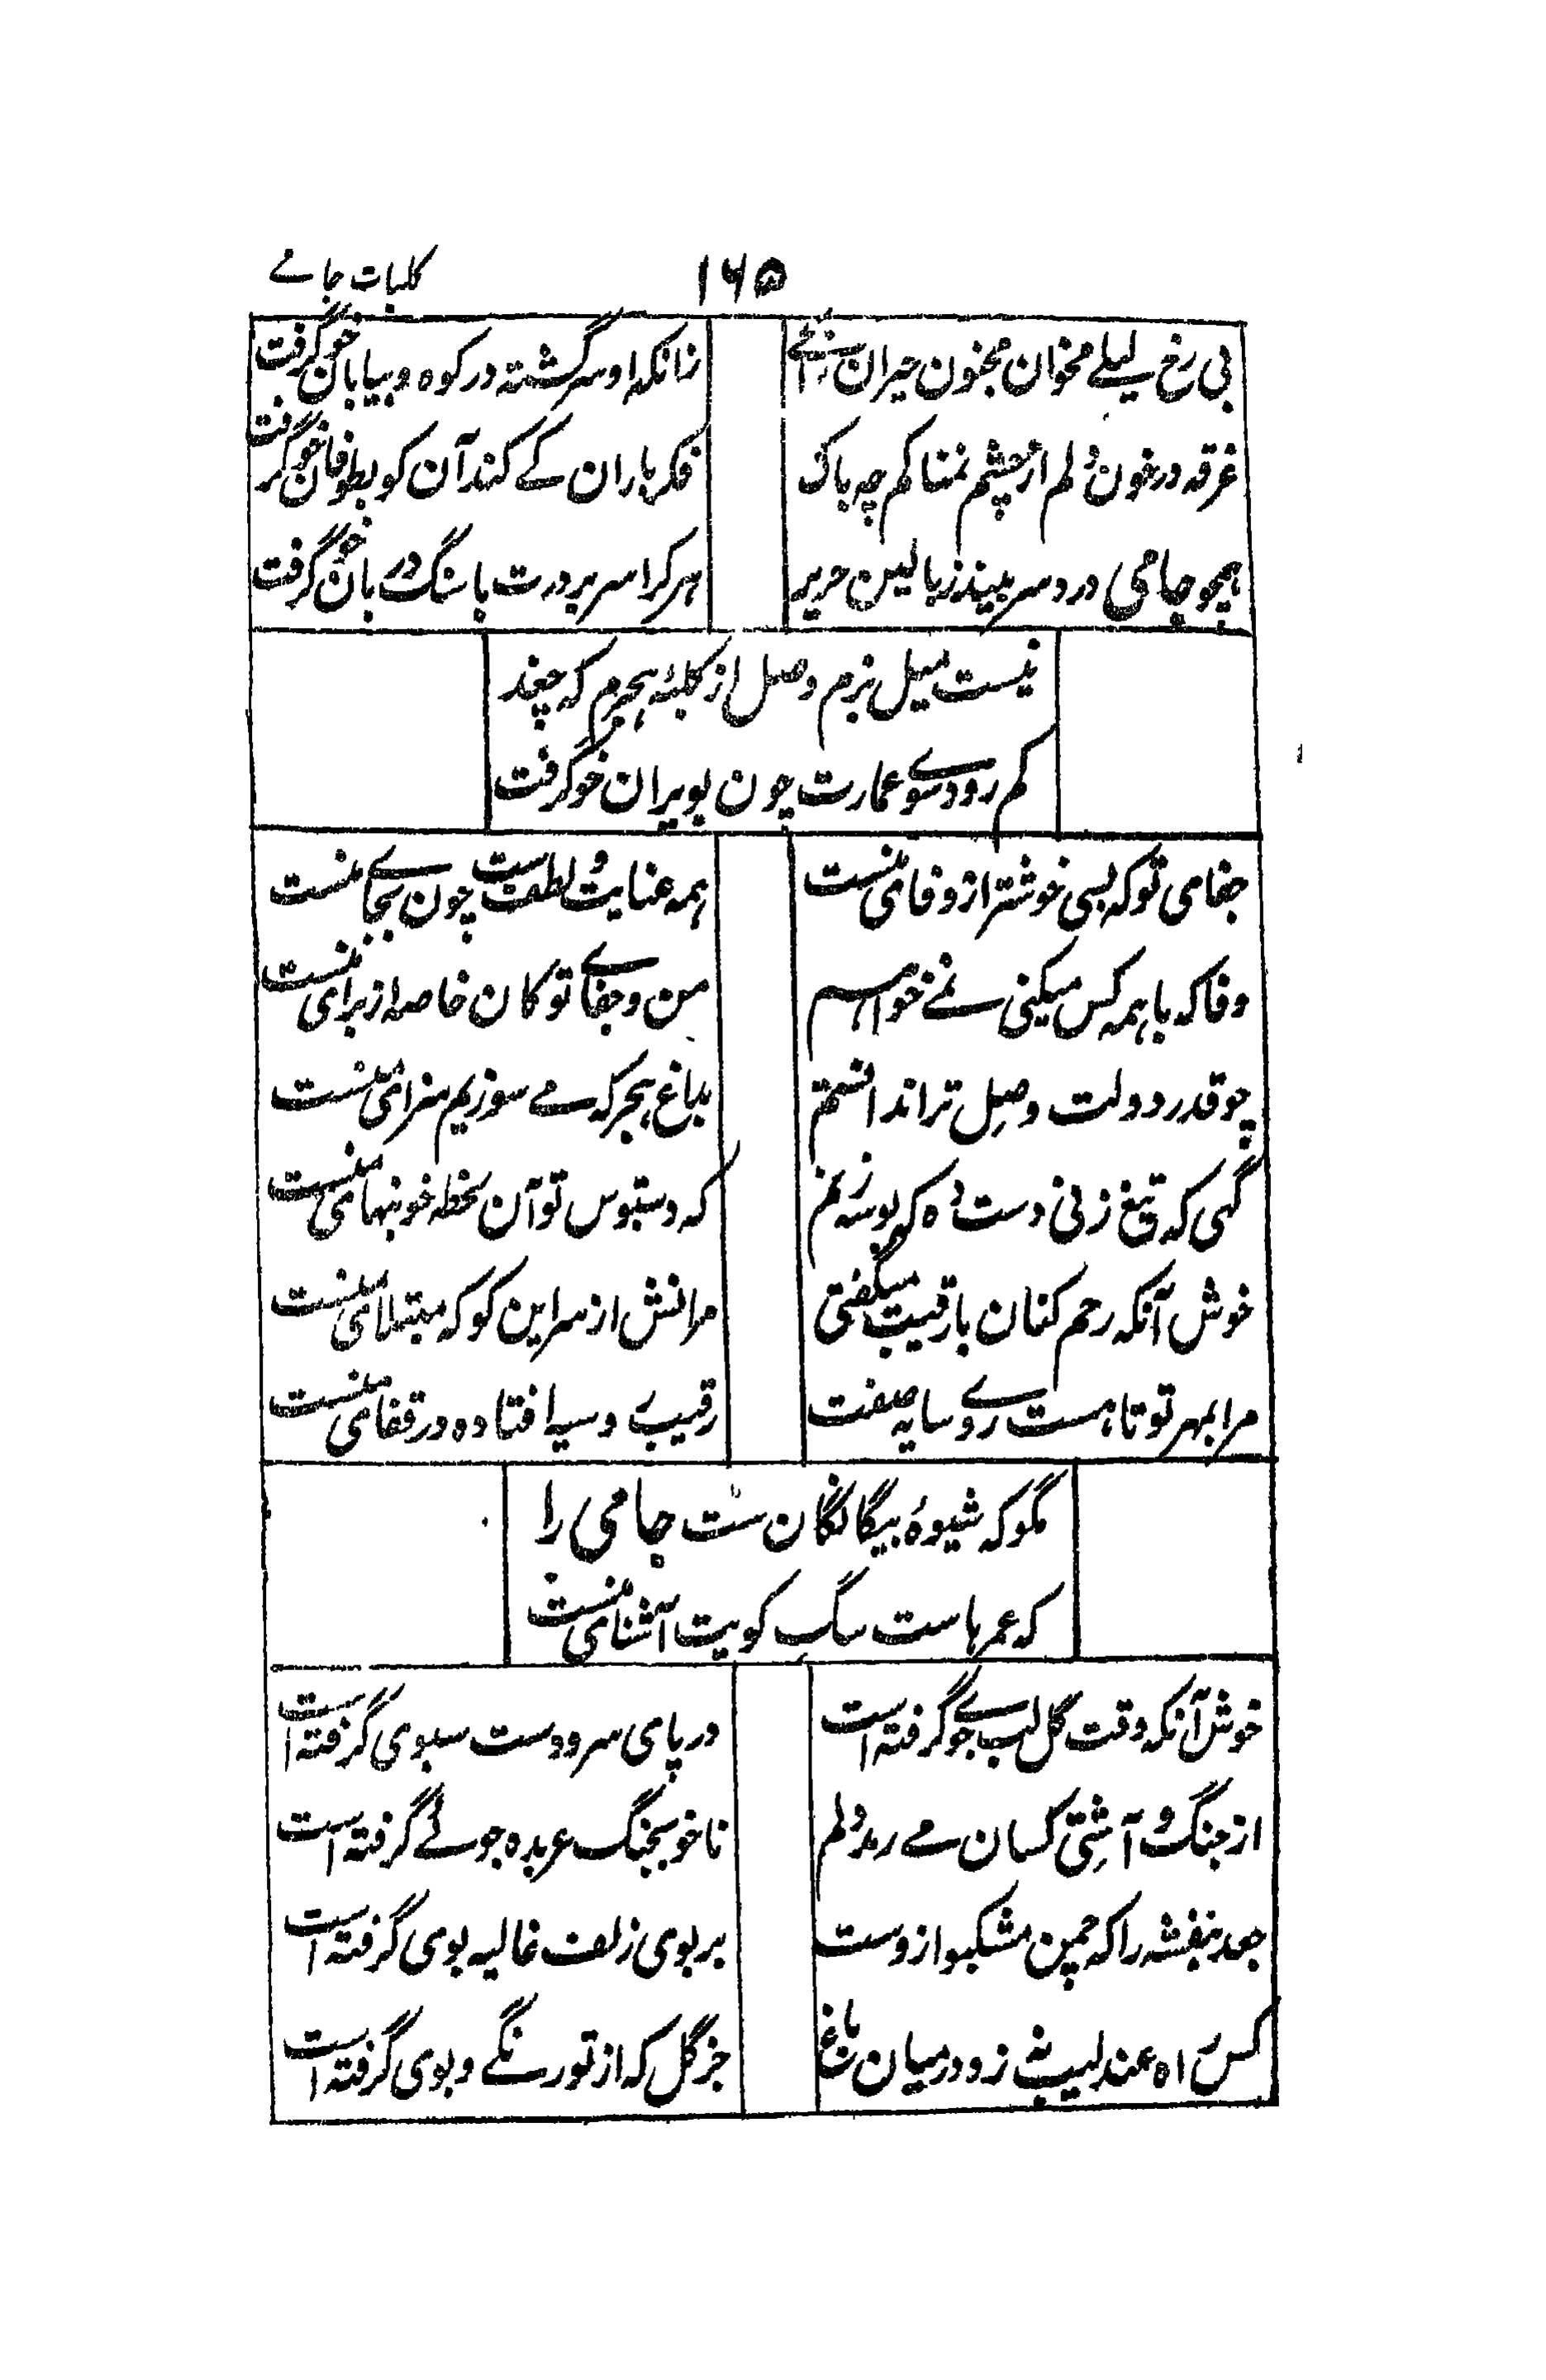 کلیات جامے
۱۶۵
بی رخ لیلے مخوان مجنون حیران را بحے
زانکہ او سرگشته در کوه و بیابان خو گرفت
غرقه در خون دلم از چشم نمناکم چه باک
فکر باران کے کند آن کو بطوفان خو گرفت
ہمچو جامی درد سر بیند ز بالین حریر
ہر کرا سر بر درت با سنگ دربان خو گرفت
نیست میل بزم وصل از کلبۂ ہجرم که چغد
کم رود سوے عمارت چون بویران خو گرفت
جفای تو که بسی خوشتر از وفای منست
ہمه عنایت و لطفست چون بجاے منست
وفا که با ہمه کس میکنی نمے خواہم
من و جفاے تو کان خاصه از برای منست
چو قدر دولت وصل ترا ندانستم
بداغ ہجر که مے سوزیم سزای منست
گہی که تیغ زنی دست ده که بوسه زنم
که دستبوس تو آن لحظه خونبہای منست
خوش آنکه رحم کنان با رقیب میگفتی
مرانش از سر این کو که مبتلای منست
مرا بمہر تو تا ہست روے سایه صفت
رقیب روسیه افتاده در قفای منست
مگو که شیوۂ بیگانگان ست جامی را
که عمرہاست سگ کویت آشنای منست
خوش آنکه وقت گل لب جوے گرفته است
در پای سرو دست سبوی گرفته است
از جنگ و آشتی کسان مے رمد دلم
تا خو بجنگ عربده جوئے گرفته است
جعد بنفشه را که چمن مشکبو ازوست
بر بوی زلف غالیه بوی گرفته است
کس راه عندلیب نه زد در میان باغ
جز گل که از تو رنگے و بوی گرفته است